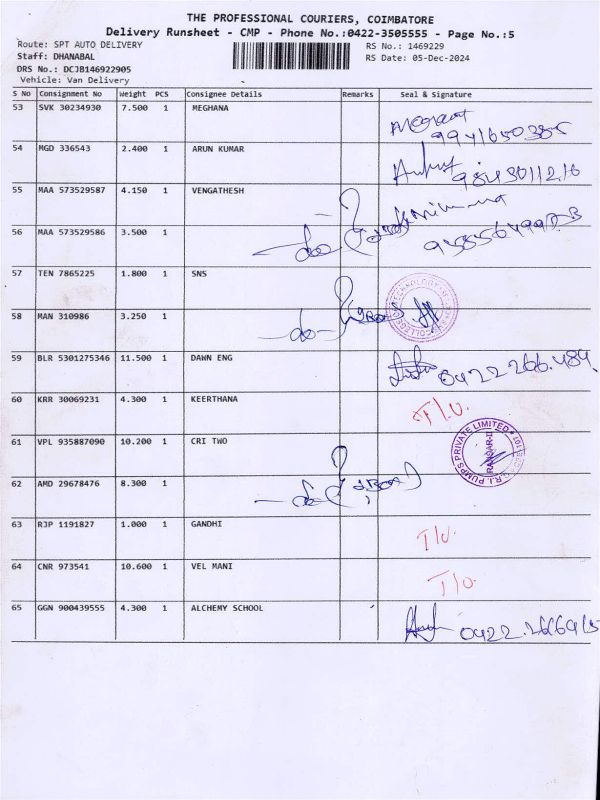 THE PROFESSIONAL COURIERS, COIMBATORE
Delivery Runsheet - CMP - Phone No.:0422-3505555 - Page No.:5
Route: SPT AUTO DELIVERY RS No.: 1469229
Staff: DHANABAL RS Date: 05-Dec-2024
DRS No.: DCJB146922905
Vehicle: Van Delivery
S No Consignment No Weight PCS Consignee Details Remarks Seal & Signature
53 SVK 30234930 7.500 1 MEGHANA
54 MGD 336543 2.400 1 ARUN KUMAR
55 MAA 573529587 4.150 1 VENGATHESH
56 MAA 573529586 3.500 1 -do-
57 TEN 7865225 1.800 1 SNS
58 MAN 310986 3.250 1 -do-
59 BLR 5301275346 11.500 1 DAWN ENG 0422 266.484
60 KRR 30069231 4.300 1 KEERTHANA T/U.
61 VPL 935887090 10.200 1 CRI TWO
62 AMD 29678476 8.300 1 -do
63 RJP 1191827 1.000 1 GANDHI T/U.
64 CNR 973541 10.600 1 VEL MANI T/U.
65 GGN 900439555 4.300 1 ALCHEMY SCHOOL